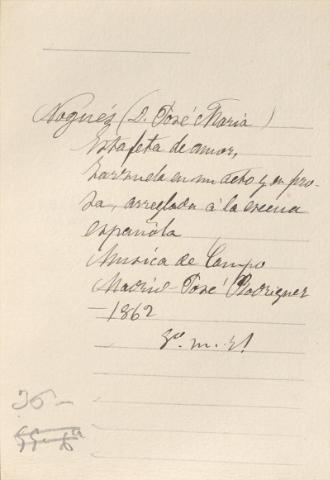 Nogués (D. José Maria)
Estafeta de amor,
Zarzuela en un acto y en pro-
sa, arreglada á la escena
española
Musica de Campo
Madrid - José Rodriguez
- 1862
8º m. 
36 -